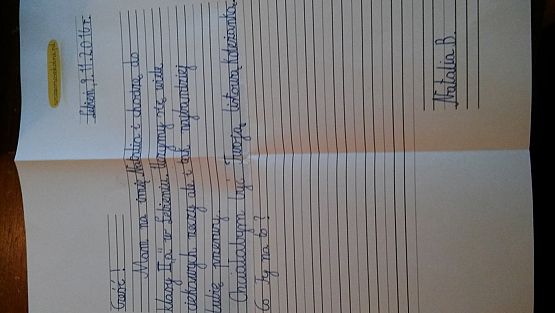 Lębień, 9.11.2016r.
Cześć!
Mam na imię Natalia i chodzę do
klasy IIa w Lębieniu. Uczymy się wiele
ciekawych rzeczy ale i tak najbardziej
lubię przerwy.
Chciałabym być Twoją listową koleżanką.
Co Ty na to?
Natalia B.